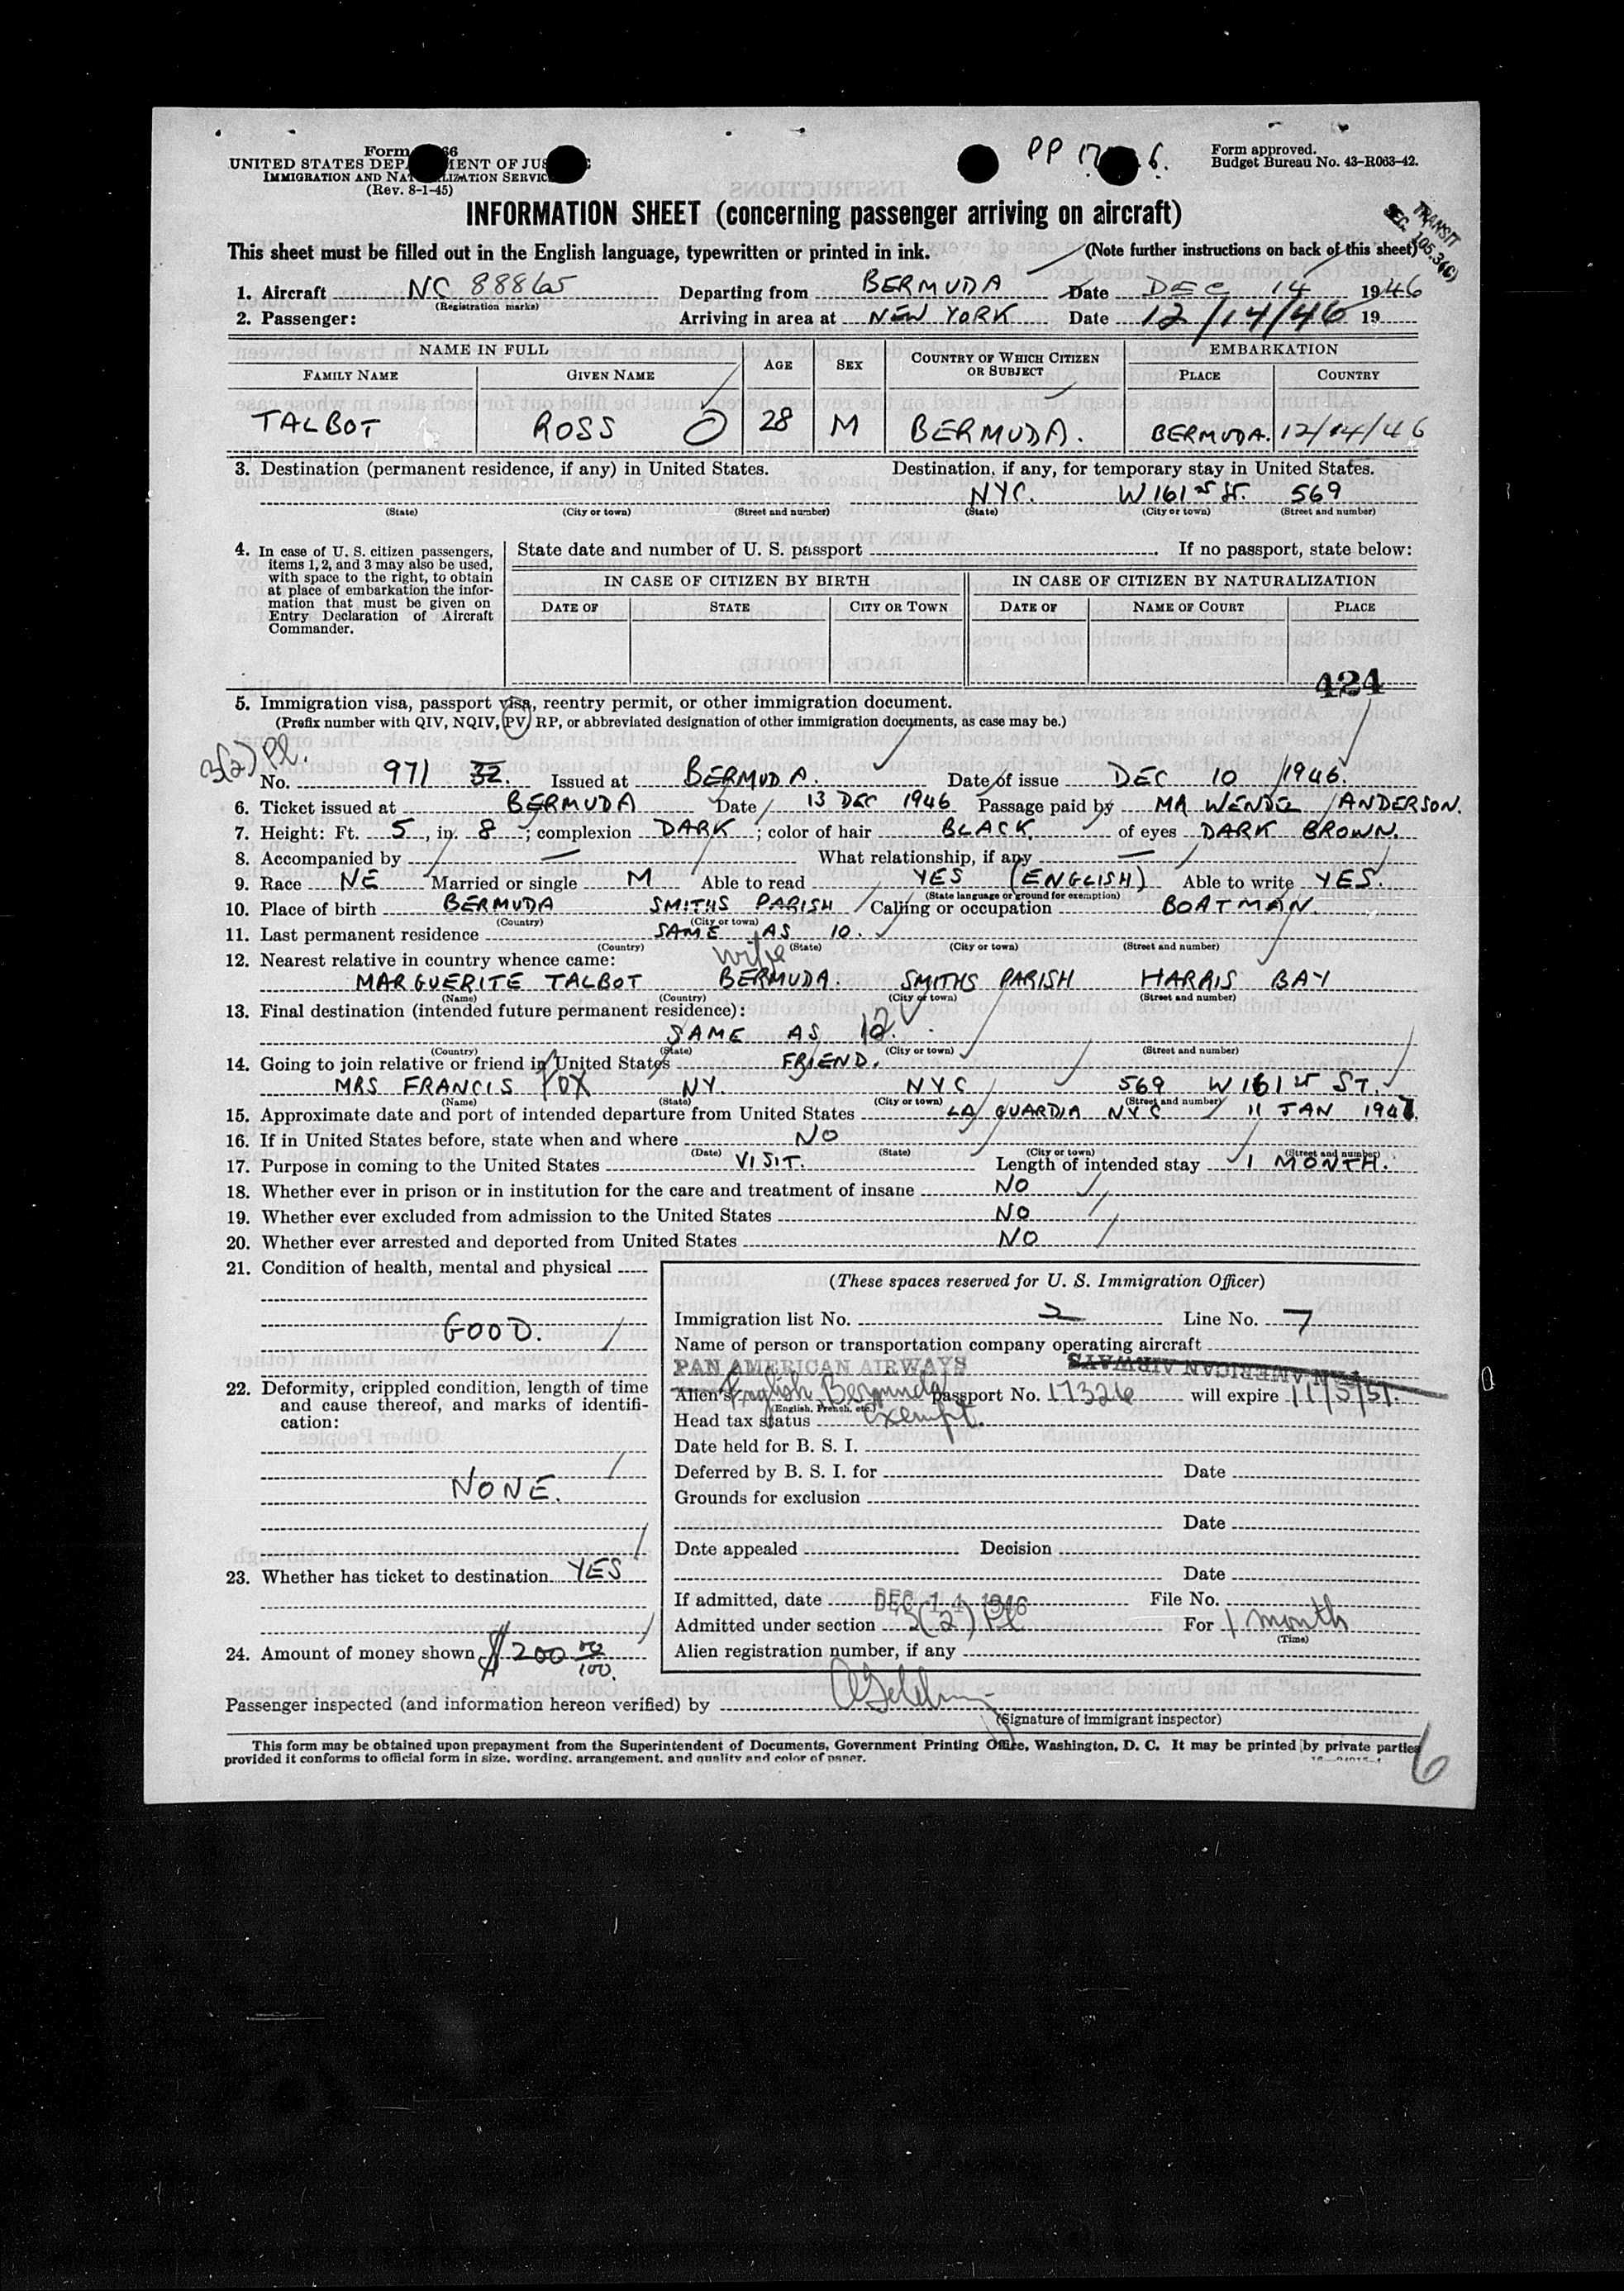 PP 17 6.
Form 66
UNITED STATES DEP MENT OF JUS
IMMIGRATION AND NAT LIZATION SERVIC
(Rev. 8-1-45)
Form approved.
Budget Bureau No. 43-R063-42.
INFORMATION SHEET (concerning passenger arriving on aircraft)
TRANSIT
SEC. 105.3(c)
This sheet must be filled out in the English language, typewritten or printed in ink. (Note further instructions on back of this sheet)
1. Aircraft NC 88865 Departing from BERMUDA Date DEC 14 1946
(Registration marks)
2. Passenger: Arriving in area at NEW YORK Date 12/14/46 19
NAME IN FULL AGE SEX COUNTRY OF WHICH CITIZEN OR SUBJECT EMBARKATION
FAMILY NAME GIVEN NAME PLACE COUNTRY
TALBOT ROSS 28 M BERMUDA. BERMUDA. 12/14/46
3. Destination (permanent residence, if any) in United States. Destination, if any, for temporary stay in United States.
NYC. W 161 ST. 569
(State) (City or town) (Street and number) (State) (City or town) (Street and number)
4. In case of U. S. citizen passengers, items 1, 2, and 3 may also be used, with space to the right, to obtain at place of embarkation the information that must be given on Entry Declaration of Aircraft Commander.
State date and number of U. S. passport If no passport, state below:
IN CASE OF CITIZEN BY BIRTH IN CASE OF CITIZEN BY NATURALIZATION
DATE OF STATE CITY OR TOWN DATE OF NAME OF COURT PLACE
424
5. Immigration visa, passport visa, reentry permit, or other immigration document.
(Prefix number with QIV, NQIV, PV, RP, or abbreviated designation of other immigration documents, as case may be.)
3(2) Pl.
No. 971 32. Issued at BERMUDA. Date of issue DEC 10 1946.
6. Ticket issued at BERMUDA Date 13 DEC 1946 Passage paid by MR WENDEL ANDERSON.
7. Height: Ft. 5, in. 8; complexion DARK; color of hair BLACK of eyes DARK BROWN.
8. Accompanied by — What relationship, if any —
9. Race NE Married or single M Able to read YES (ENGLISH) Able to write YES.
(State language or ground for exemption)
10. Place of birth BERMUDA SMITHS PARISH Calling or occupation BOATMAN.
(Country) (City or town)
11. Last permanent residence SAME AS 10.
(Country) (State) (City or town) (Street and number)
12. Nearest relative in country whence came: wife
MARGUERITE TALBOT BERMUDA. SMITHS PARISH HARRIS BAY
(Name) (Country) (City or town) (Street and number)
13. Final destination (intended future permanent residence):
SAME AS 12.
(Country) (State) (City or town) (Street and number)
14. Going to join relative or friend in United States FRIEND.
MRS FRANCIS FOX NY. NYC 569 W 161 ST.
(Name) (State) (City or town) (Street and number)
15. Approximate date and port of intended departure from United States LA GUARDIA NYC 11 JAN 1947.
16. If in United States before, state when and where NO
(Date) (State) (City or town) (Street and number)
17. Purpose in coming to the United States VISIT. Length of intended stay 1 MONTH.
18. Whether ever in prison or in institution for the care and treatment of insane NO
19. Whether ever excluded from admission to the United States NO
20. Whether ever arrested and deported from United States NO
21. Condition of health, mental and physical
GOOD.
22. Deformity, crippled condition, length of time and cause thereof, and marks of identification:
NONE.
23. Whether has ticket to destination YES
24. Amount of money shown $200 00/100.
(These spaces reserved for U. S. Immigration Officer)
Immigration list No. 2 Line No. 7
Name of person or transportation company operating aircraft
PAN AMERICAN AIRWAYS PAN AMERICAN AIRWAYS
Alien's English Bermuda passport No. 17326 will expire 11/5/51.
(English, French, etc.)
Head tax status exempt.
Date held for B. S. I.
Deferred by B. S. I. for Date
Grounds for exclusion
Date
Date appealed Decision
Date
If admitted, date DEC 14 1946 File No.
Admitted under section 3(2) Pl For 1 month
(Time)
Alien registration number, if any
Passenger inspected (and information hereon verified) by
(Signature of immigrant inspector)
This form may be obtained upon prepayment from the Superintendent of Documents, Government Printing Office, Washington, D. C. It may be printed by private parties
provided it conforms to official form in size, wording, arrangement, and quality and color of paper.
6